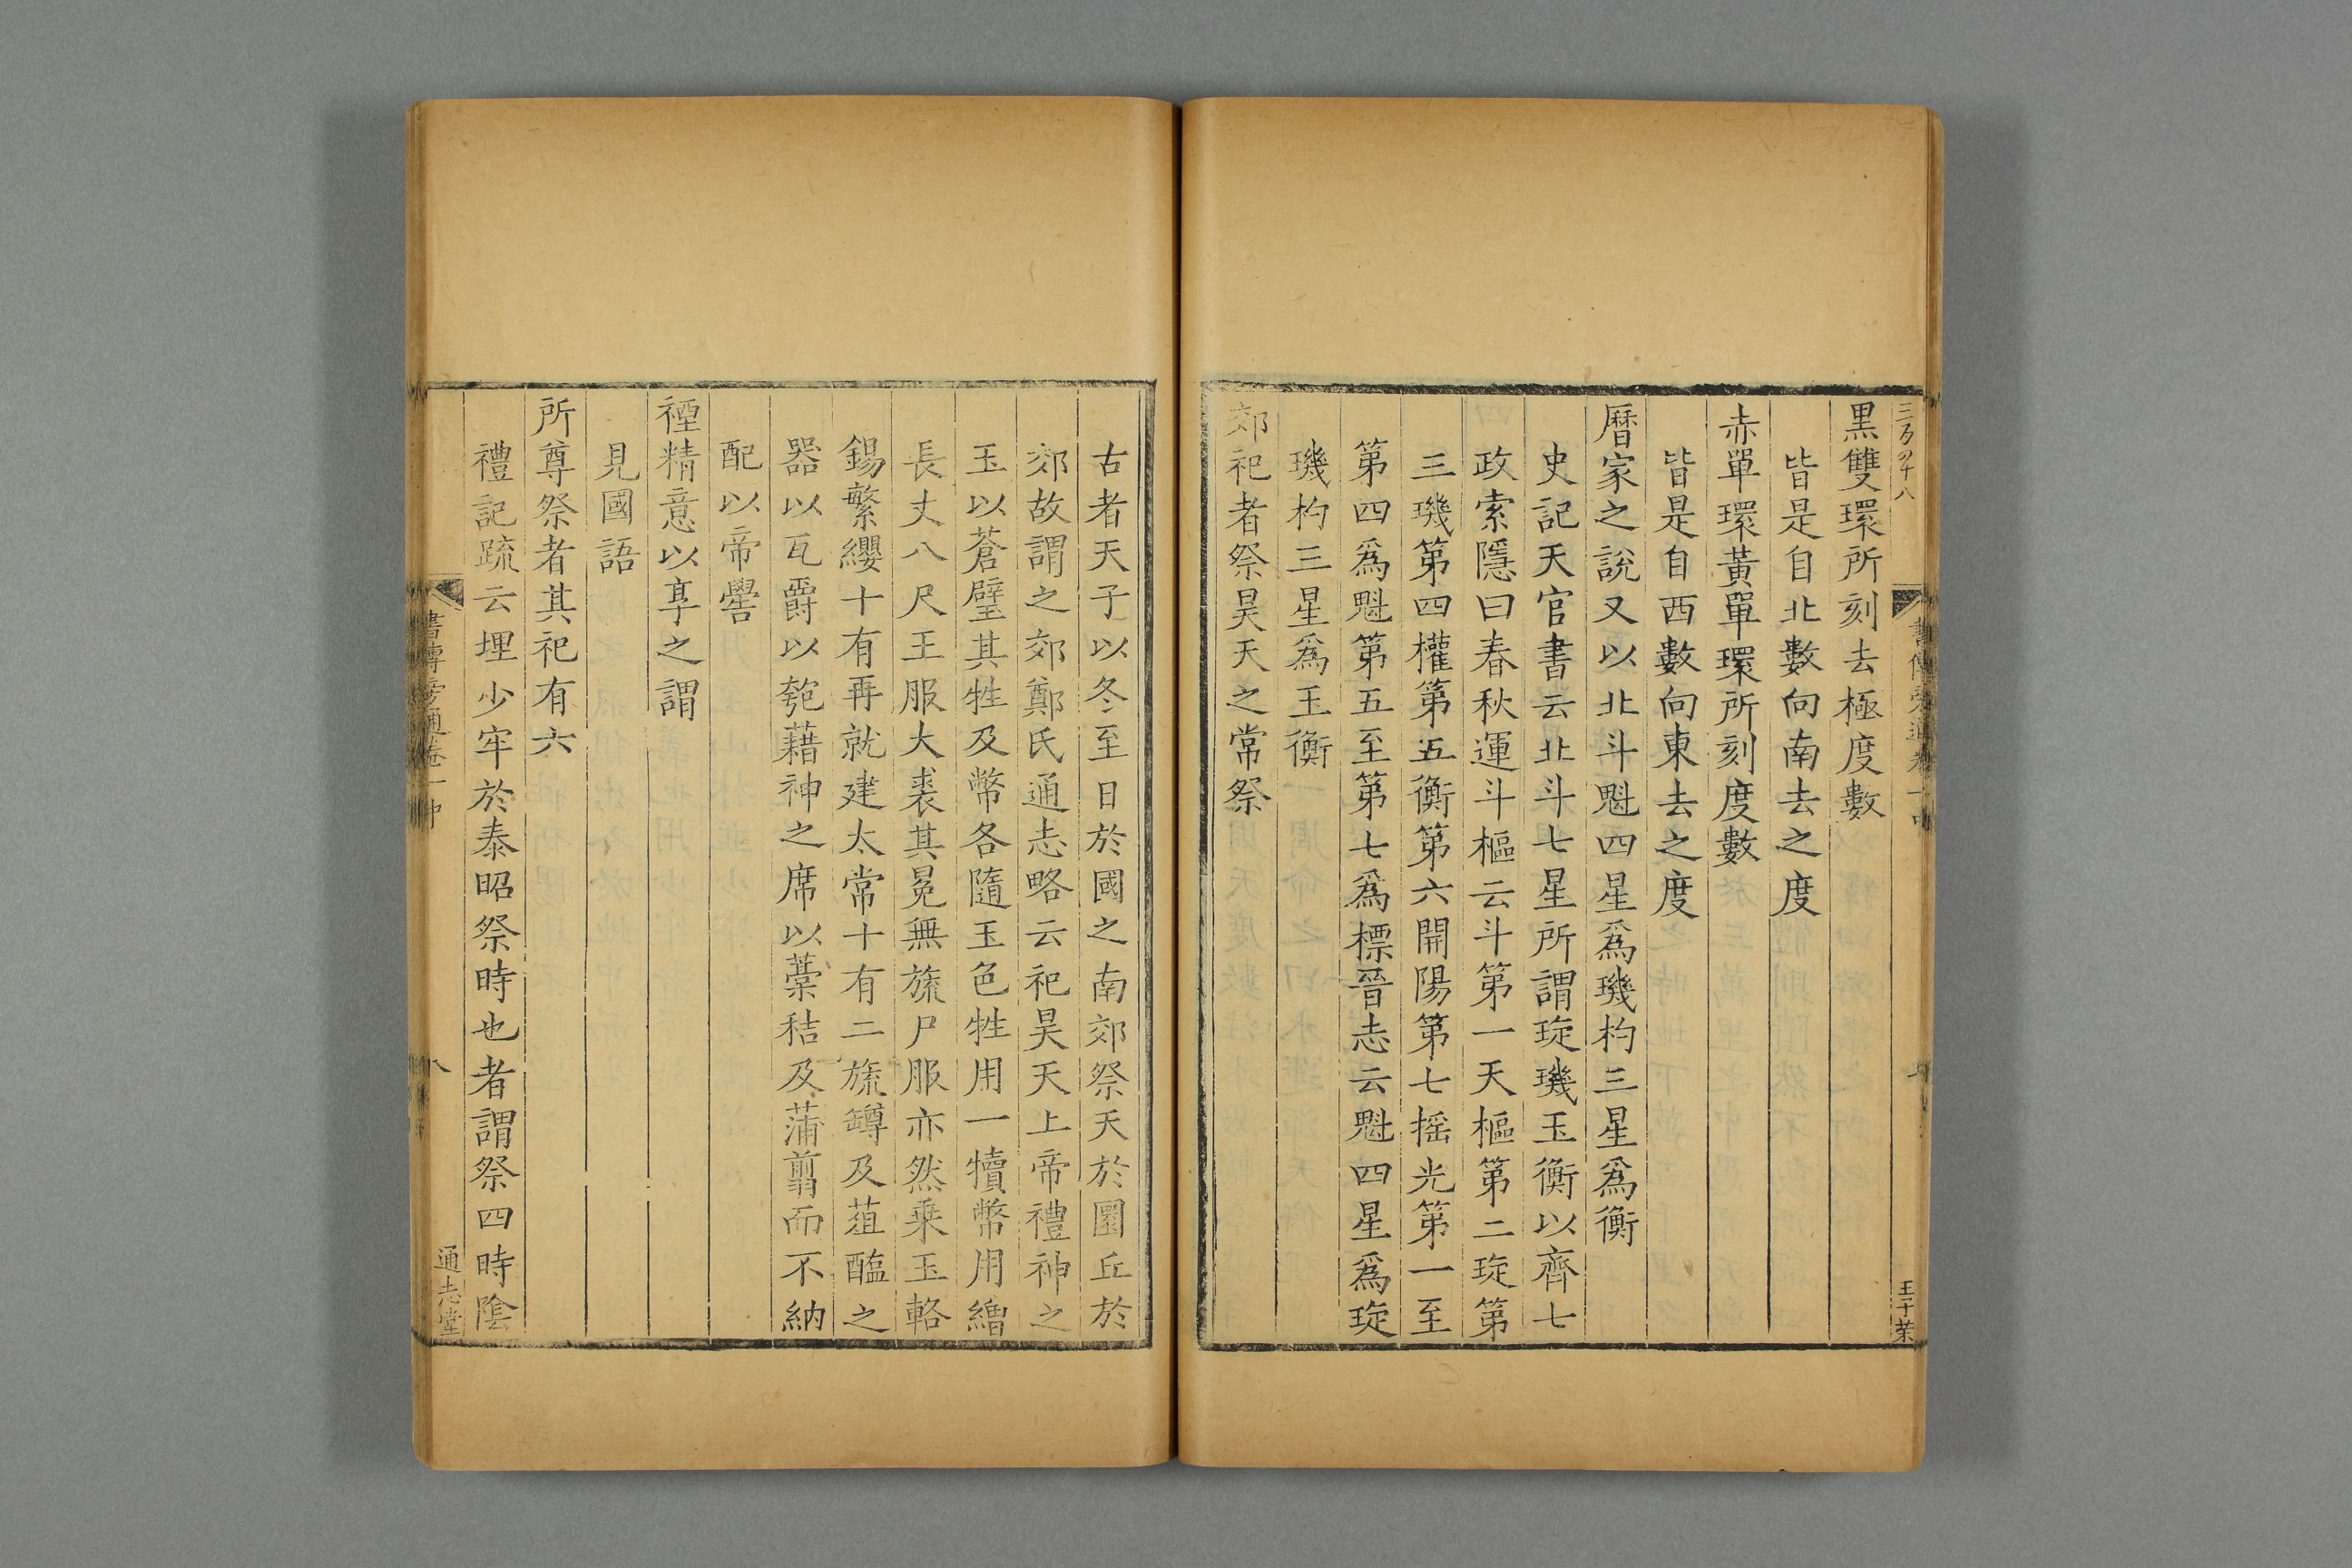 黒雙環所刻去極度數
皆是自北數向南去之度
赤單環黃單環所刻度數
皆是自西數向東去之度
曆家之說又以北斗魁四星爲璣杓三星爲衡
史記天官書云北斗七星所謂琁璣玉衡以齊七
政索隱曰春秋運斗樞云斗第一天樞第二琁第
三璣第四權第五衡第六開陽第七摇光第一至
第四爲魁第五至第七爲標晉志云魁四星爲琁
璣杓三星爲玉衡
郊祀者祭昊天之常祭
古者天子以冬至日於國之南郊祭天於圜丘於
郊故謂之郊鄭氏通志略云祀昊天上帝禮神之
玉以蒼璧其牲及幣各隨玉色牲用一犢幣用繒
長丈八尺王服大裘其冕無旒尸服亦然乗玉輅
錫繁纓十有再就建太常十有二旒罇及葅醢之
器以瓦爵以匏藉神之席以藁秸及蒲翦而不納
配以帝嚳
禋精意以享之謂
見國語
所尊祭者其祀有六
禮記疏云埋少牢於泰昭祭時也者謂祭四時陰
書傳旁通卷一中
八
通志堂